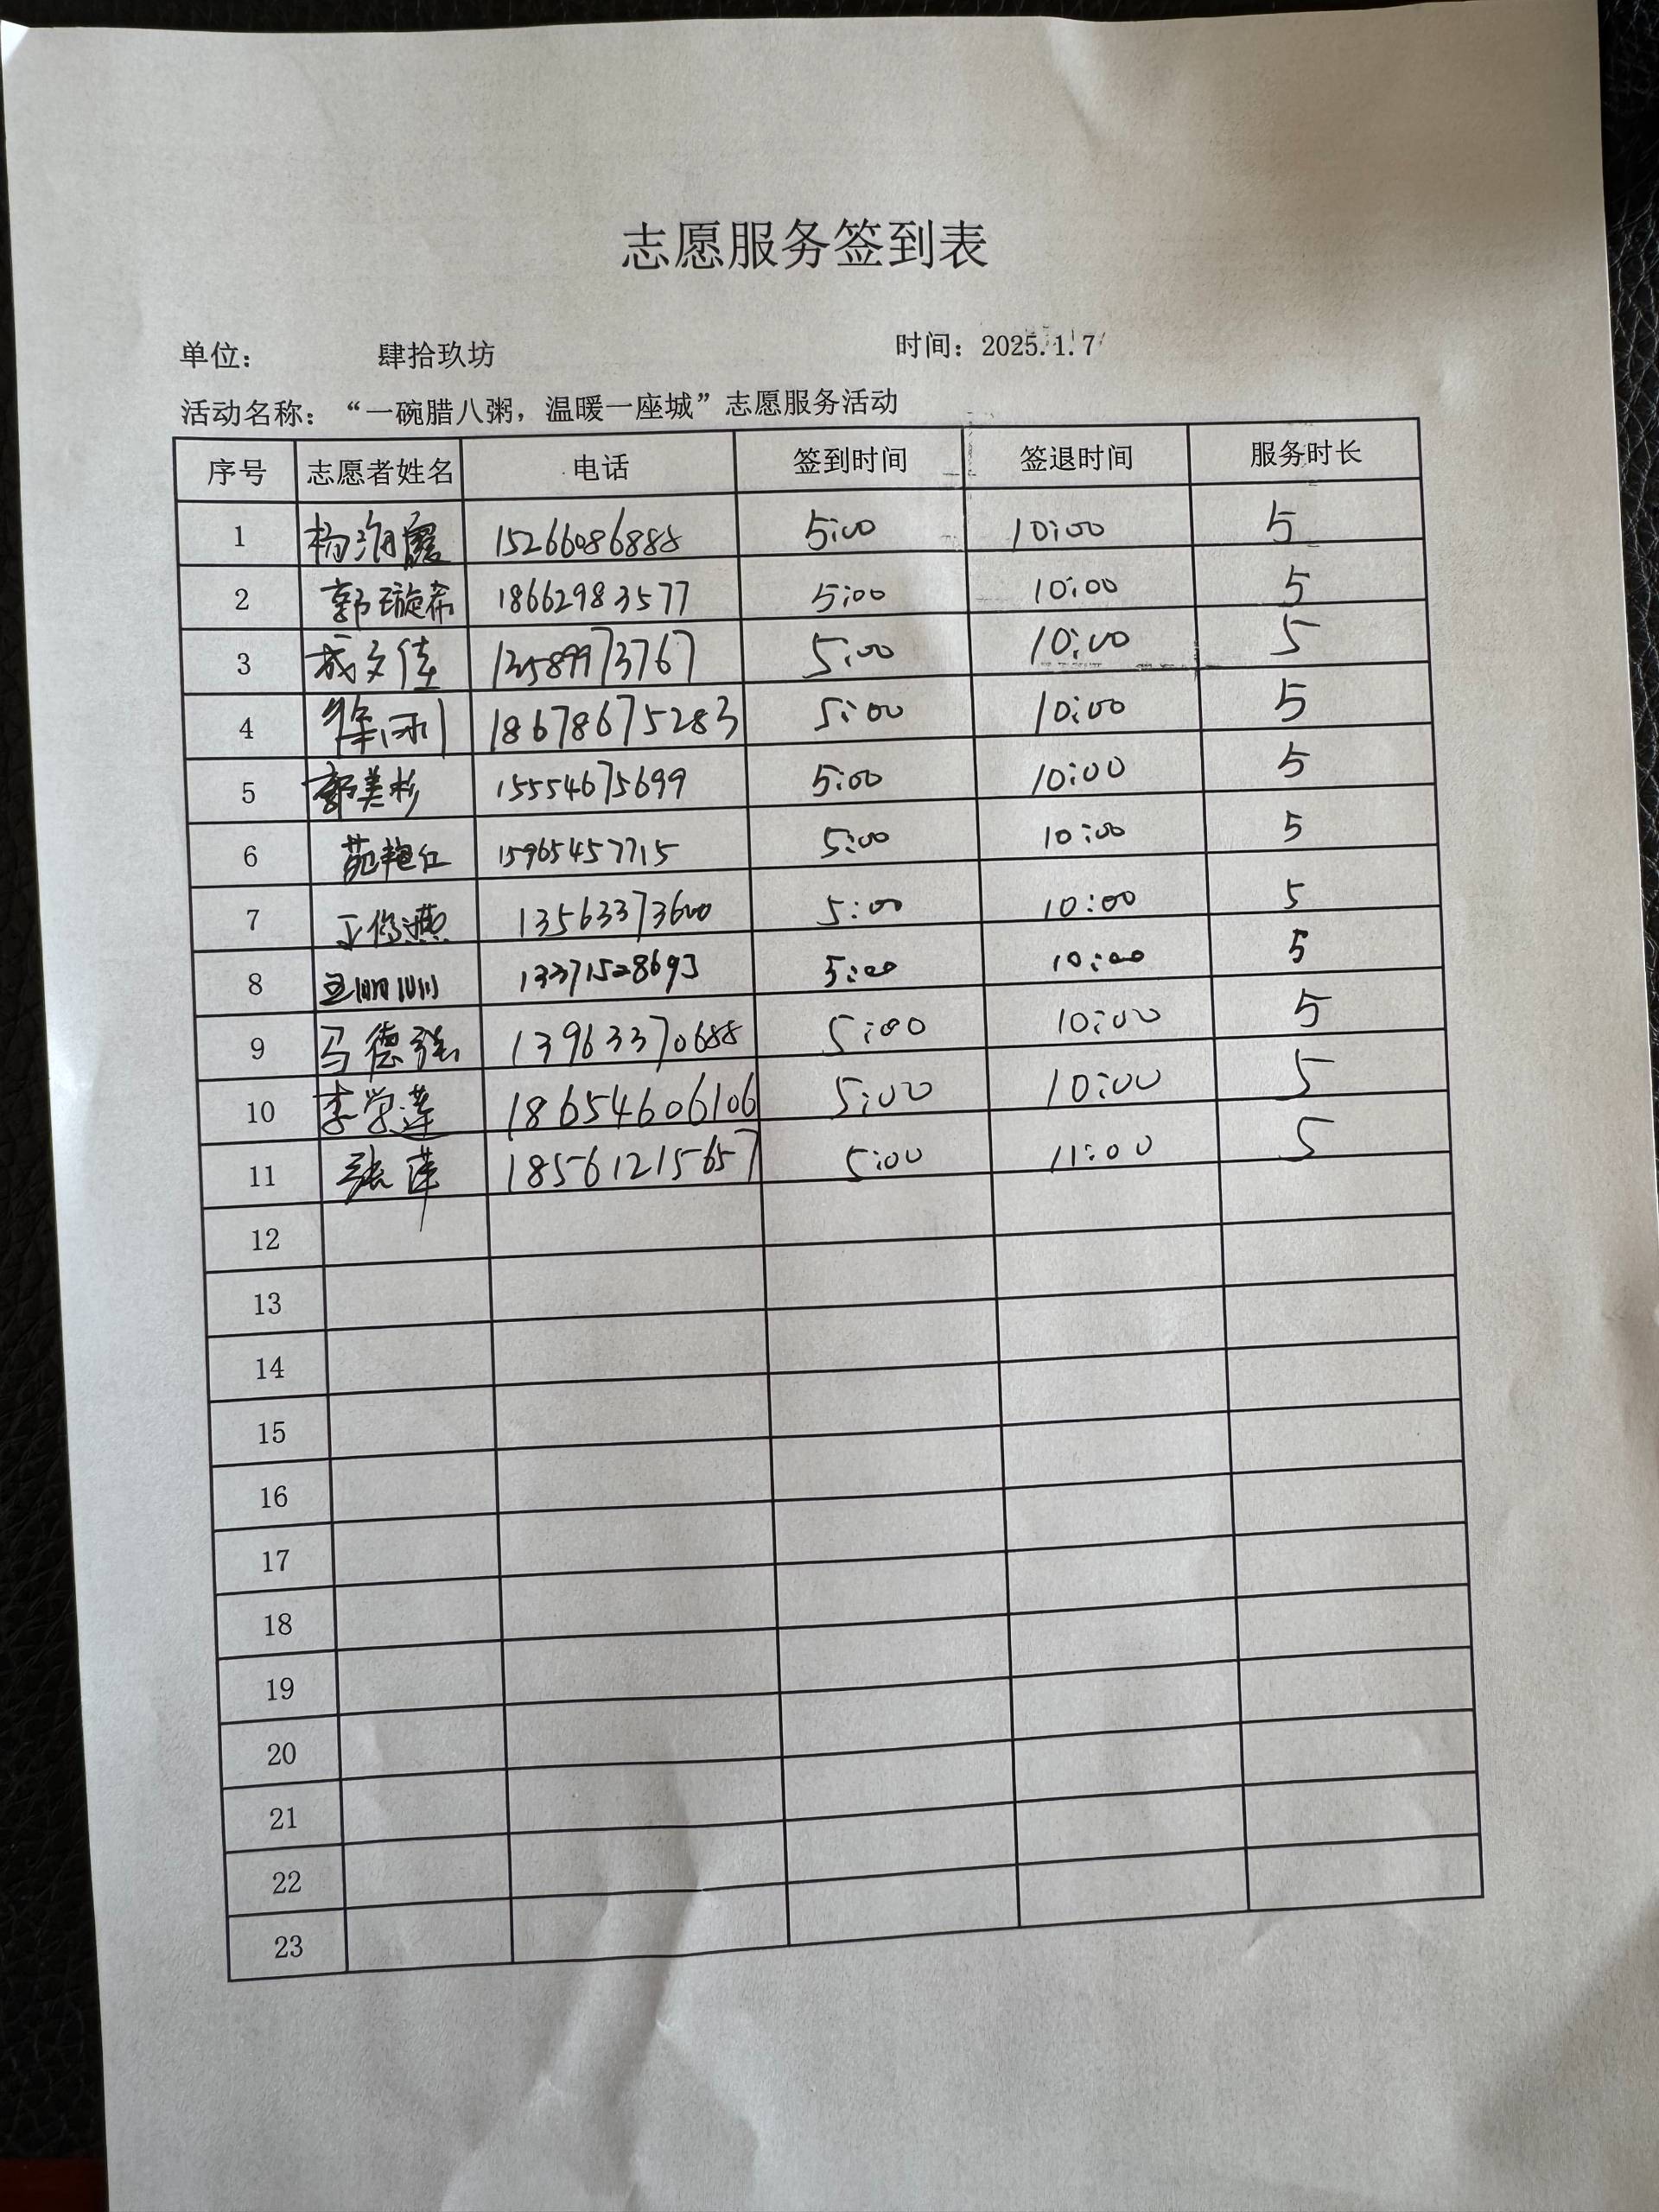 志愿服务签到表
单位： 肆拾玖坊 时间：2025.1.7
活动名称：“一碗腊八粥，温暖一座城”志愿服务活动
序号 志愿者姓名 电话 签到时间 签退时间 服务时长
1 杨 15266086888 5:00 10:00 5
2 郭璇希 18662983577 5:00 10:00 5
3 成文佳 13589973767 5:00 10:00 5
4 徐 18678675283 5:00 10:00 5
5 郭美杉 15554675699 5:00 10:00 5
6 苑艳红 15965457715 5:00 10:00 5
7 13563373600 5:00 10:00 5
8 13371528693 5:00 10:00 5
9 马德强 13963370688 5:00 10:00 5
10 李学莲 18654606106 5:00 10:00 5
11 张萍 18561215657 5:00 11:00 5
12
13
14
15
16
17
18
19
20
21
22
23